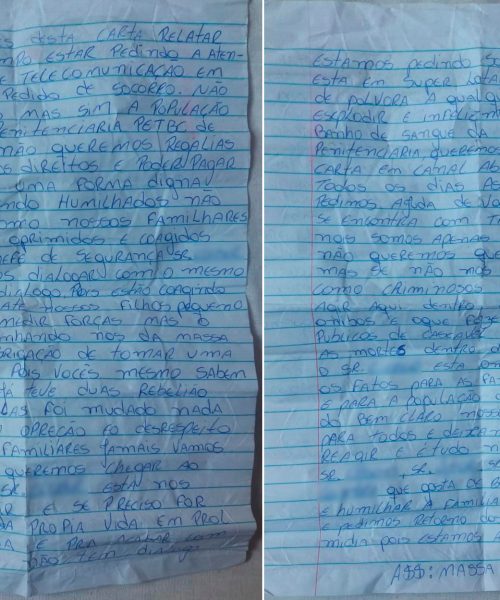 DESTA CARTA RELATAR
ESTAR PEDINDO A ATEN-
E TELECOMUNICAÇÃO EM
PEDIDO DE SOCORRO. NÃO
MAS SIM A POPULAÇÃO
PENITENCIARIA PETBC DE
NÃO QUEREMOS REGALIAS
OS DIREITOS E PODER PAGAR
UMA FORMA DIGNA
ENDO HUMILHADOS NÃO
COMO NOSSOS FAMILHARES
OPRIMIDOS E COAGIDOS
DE SEGURANÇA SR.
DIALOGAR COM O MESMO
DIALOGO. POIS ESTÃO COAGINDO
ATÉ NOSSOS FILHOS PEQUENO
MEDIR FORÇAS MAS O
NHANDO NOS DA MASSA
BRIGAÇÃO DE TOMAR UMA
POIS VOCÊS MESMO SABEM
JÁ TEVE DUAS REBELIÃO
FOI MUDADO NADA
OPREÇÃO FO DESRESPEITO
FAMILIARES JAMAIS VAMOS
QUEREMOS CHEGAR AO
SR. ESTA NOS
E SE PRECISO FOR
A PROPIA VIDA EM PROL
E PRA ACABAR COM
NÃO TEM DIALOGO
ESTAMOS PEDINDO SO
ESTA EM SUPER LOTA
DE POLVORA A QUAL
EXPLODIR E INFELIZM
BANHO DE SANGUE DA
PENITENCIARIA QUEREMOS
CARTA EM CANAL AB
TODOS OS DIAS AS
PEDIMOS AJUDA DE VO
SE ENCONTRA COM T
MAIS SOMOS APENAS
NÃO QUEREMOS QUE
MAS SE NÃO NOS
COMO CRIMINOSOS
AGIR AQUI DENTRO
ONIBUS E OQUE FOR
PUBLICOS DE CASCAVEL
AS MORTES DENTRO D
O SR. ESTA
OS FATOS PARA AS FA
E PARA A POPULAÇÃO
DO BEM CLARO NOSS
PARA TODOS E DEIXA
REAGIR E ETUDO N
SR. SR.
QUE GOSTA
E HUMILHAR A FAMILIA
E PEDIMOS RETORNO DO
MIDIA POIS ESTAMOS A
A$$: MASSA